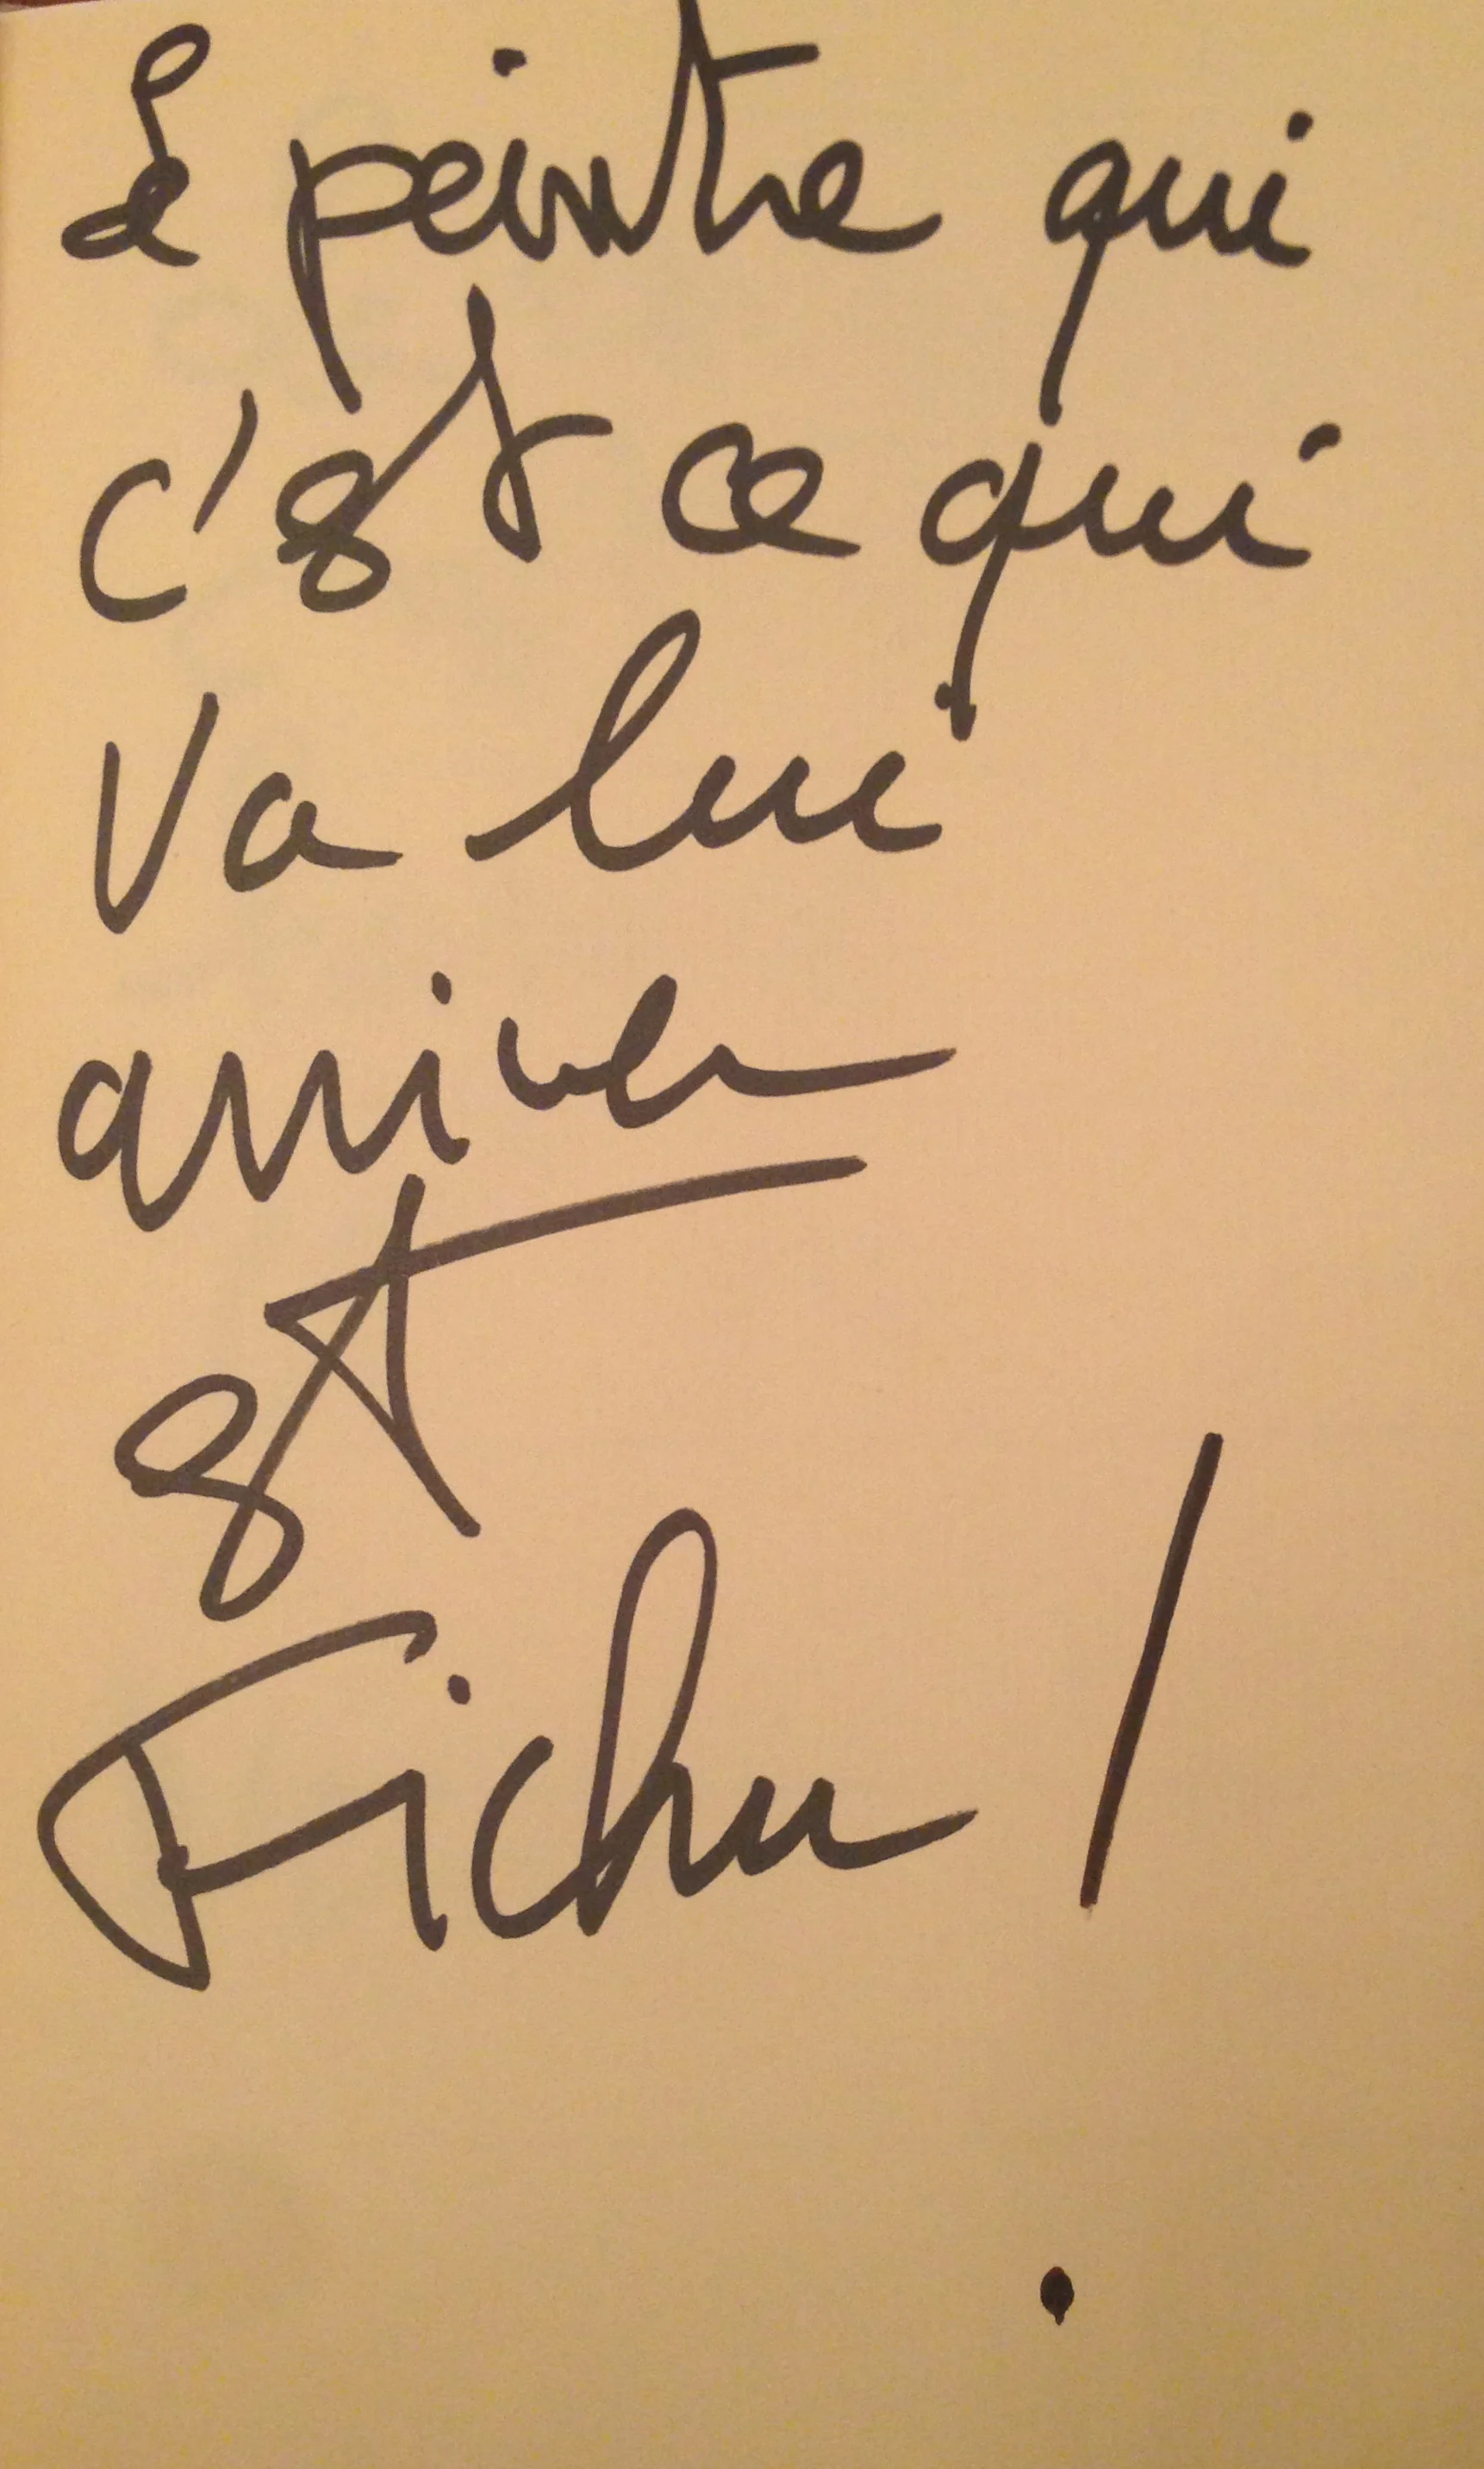 Le peintre qui
c'est ce qui
va lui
arriver
est
Fichu !